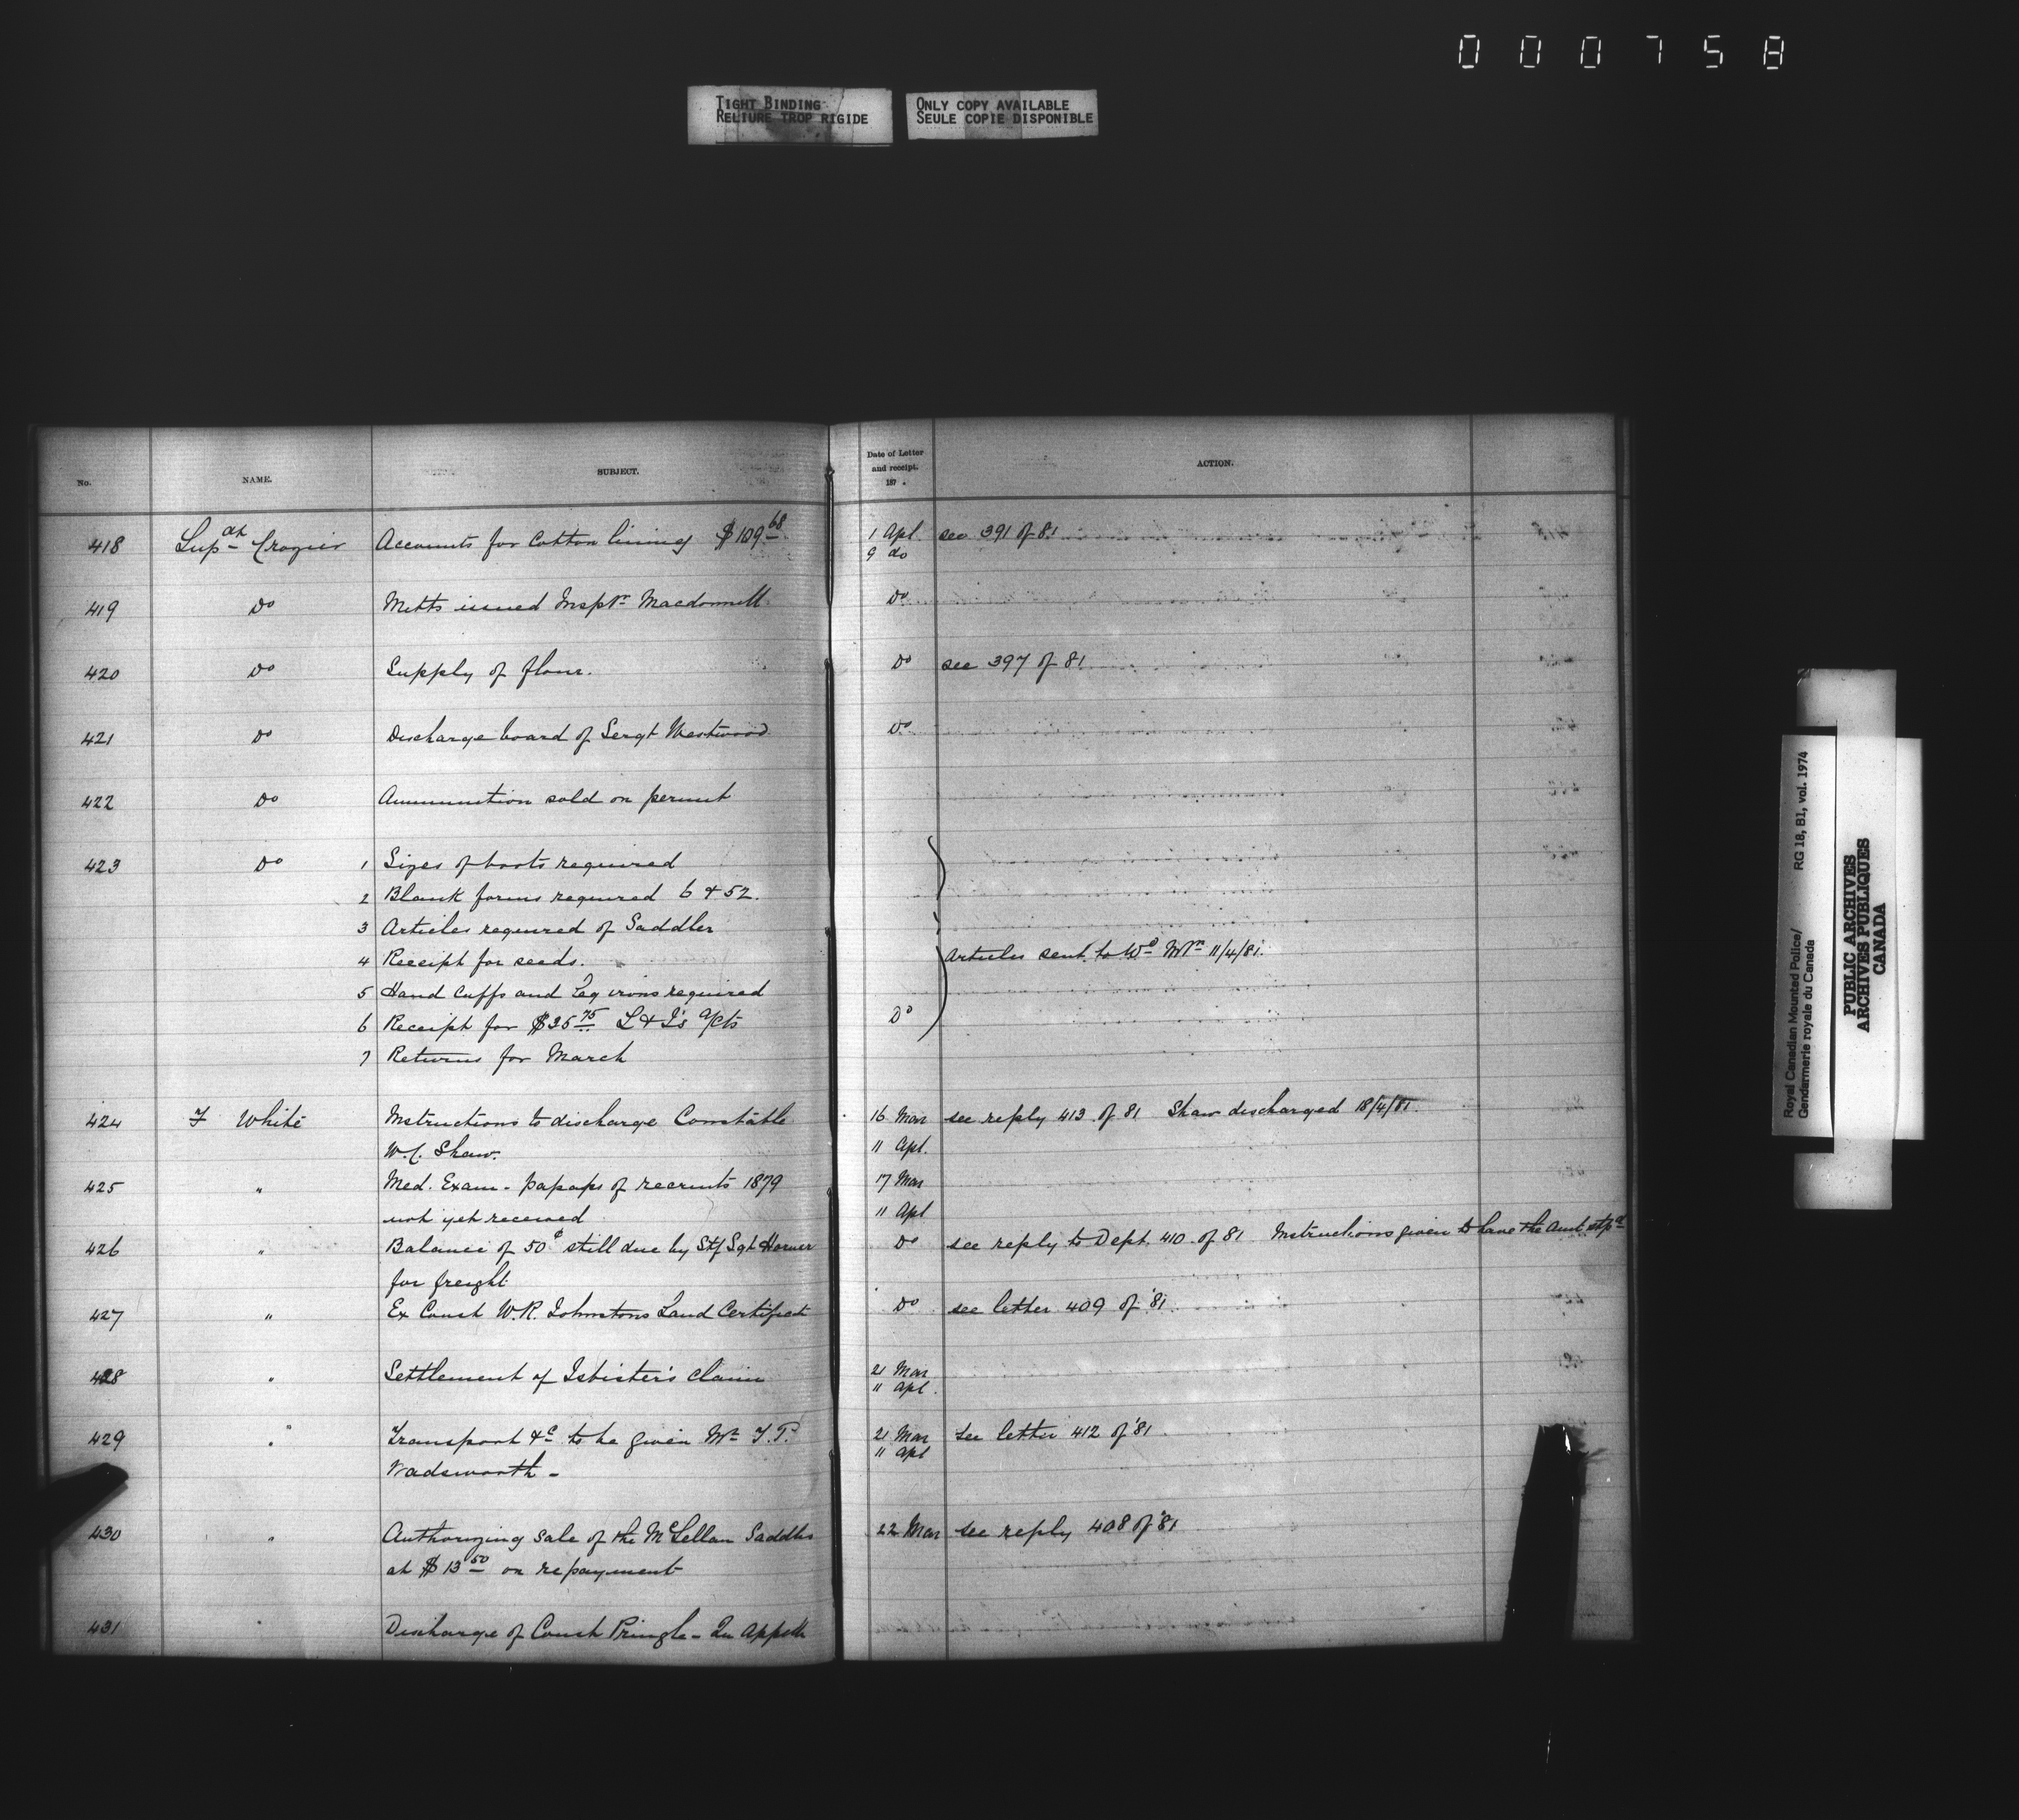 000758
TIGHT BINDING
RELIURE TROP RIGIDE
ONLY COPY AVAILABLE
SEULE COPIE DISPONIBLE
No. NAME. SUBJECT. Date of Letter and receipt. 187 . ACTION.
418 Supdt Crozier Accounts for Cotton lining $109 68 1 Apl see 391 of 81
9 do
419 Do Mitts issued Inspr Macdonnell Do
420 Do Supply of flour. Do see 397 of 81
421 Do Discharge board of Sergt Westwood Do
422 Do Ammunition sold on permit
423 Do 1 Sizes of boots required
2 Blank forms required 6 & 52.
3 Articles required of Saddler
4 Receipt for seeds. Articles sent to 11/4/81.
5 Hand Cuffs and Leg irons required
6 Receipt for $35 75 L & I's a/cts Do
7 Returns for March
424 F White Instructions to discharge Constable 16 Mar see reply 413 of 81 Shaw discharged 18/4/81.
W.C. Shaw. 11 Apl.
425 " Med. Exam - papaps of recruits 1879 17 Mar
not yet received 11 Apl
426 " Balance of 50¢ still due by Stf Sgt Horner Do see reply to Dept. 410 of 81 Instructions given to have the amt stpd
for freight
427 " Ex Const W.R. Johnstons Land Certificate Do see letter 409 of '81
428 " Settlement of Isbister's claim 21 Mar
11 Apl.
429 " Transport &c to be given Mr T.P. 21 Mar see letter 412 of '81
Wadsworth - 11 Apl
430 " Authorizing sale of the McLellan Saddles 22 Mar see reply 408 of '81
at $13 50 on repayment
431 " Discharge of Const Pringle - Qu Appelle
Royal Canadian Mounted Police/ RG 18, B1, vol. 1974
Gendarmerie royale du Canada
PUBLIC ARCHIVES
ARCHIVES PUBLIQUES
CANADA